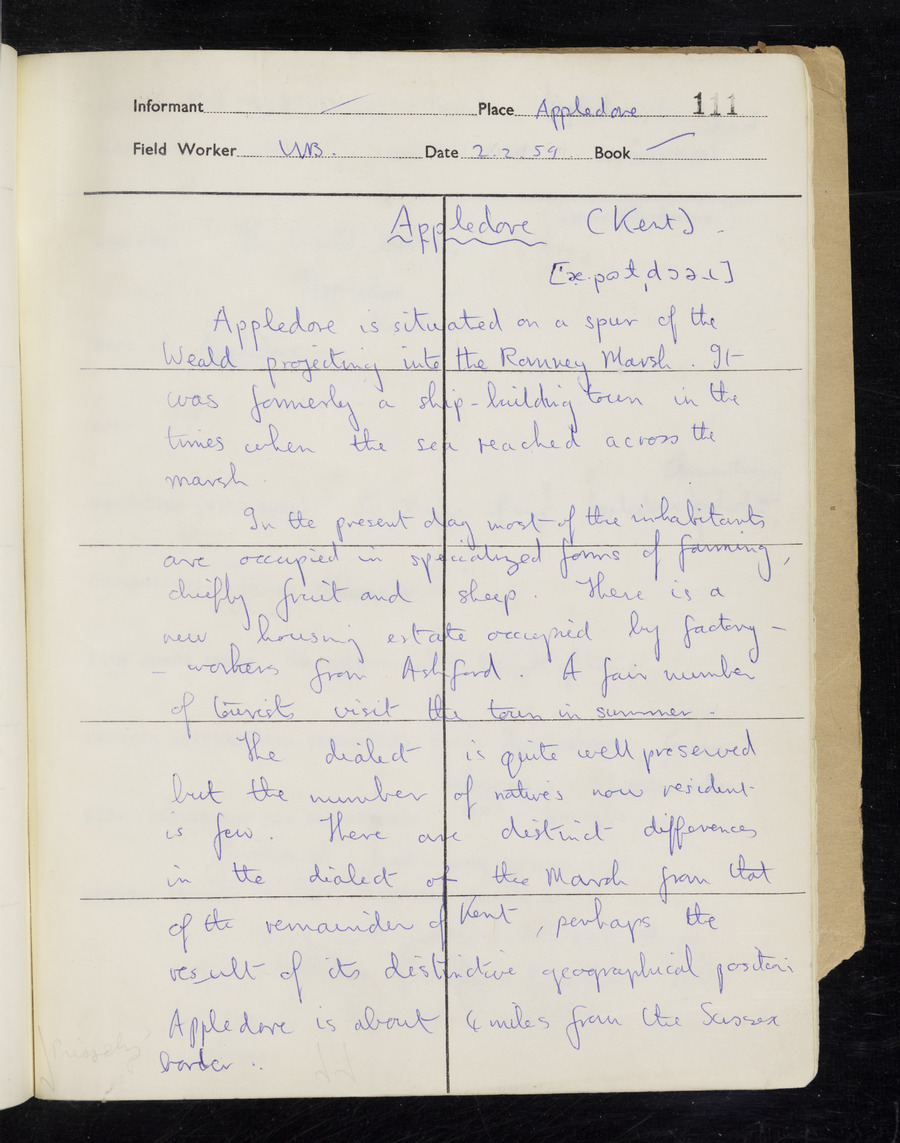 Informant Place Appledore 111
Field Worker WB. Date 2.2.59. Book
Appledore (Kent).
Appledore is situated on a spur of the
Weald projecting into the Romney Marsh. It
was formerly a ship-building town in the
times when the sea reached across the
marsh
In the present day most of the inhabitants
are occupied in specialized forms of farming,
chiefly fruit and sheep. There is a
new housing estate occupied by factory-
- workers from Ashford. A fair number
of tourists visit the town in summer.
The dialect is quite well preserved
but the number of natives now resident
is few. There are distinct differences
in the dialect of the Marsh from that
of the remainder of Kent, perhaps the
result of its distinctive geographical position
Appledore is about 4 miles from the Sussex
border.